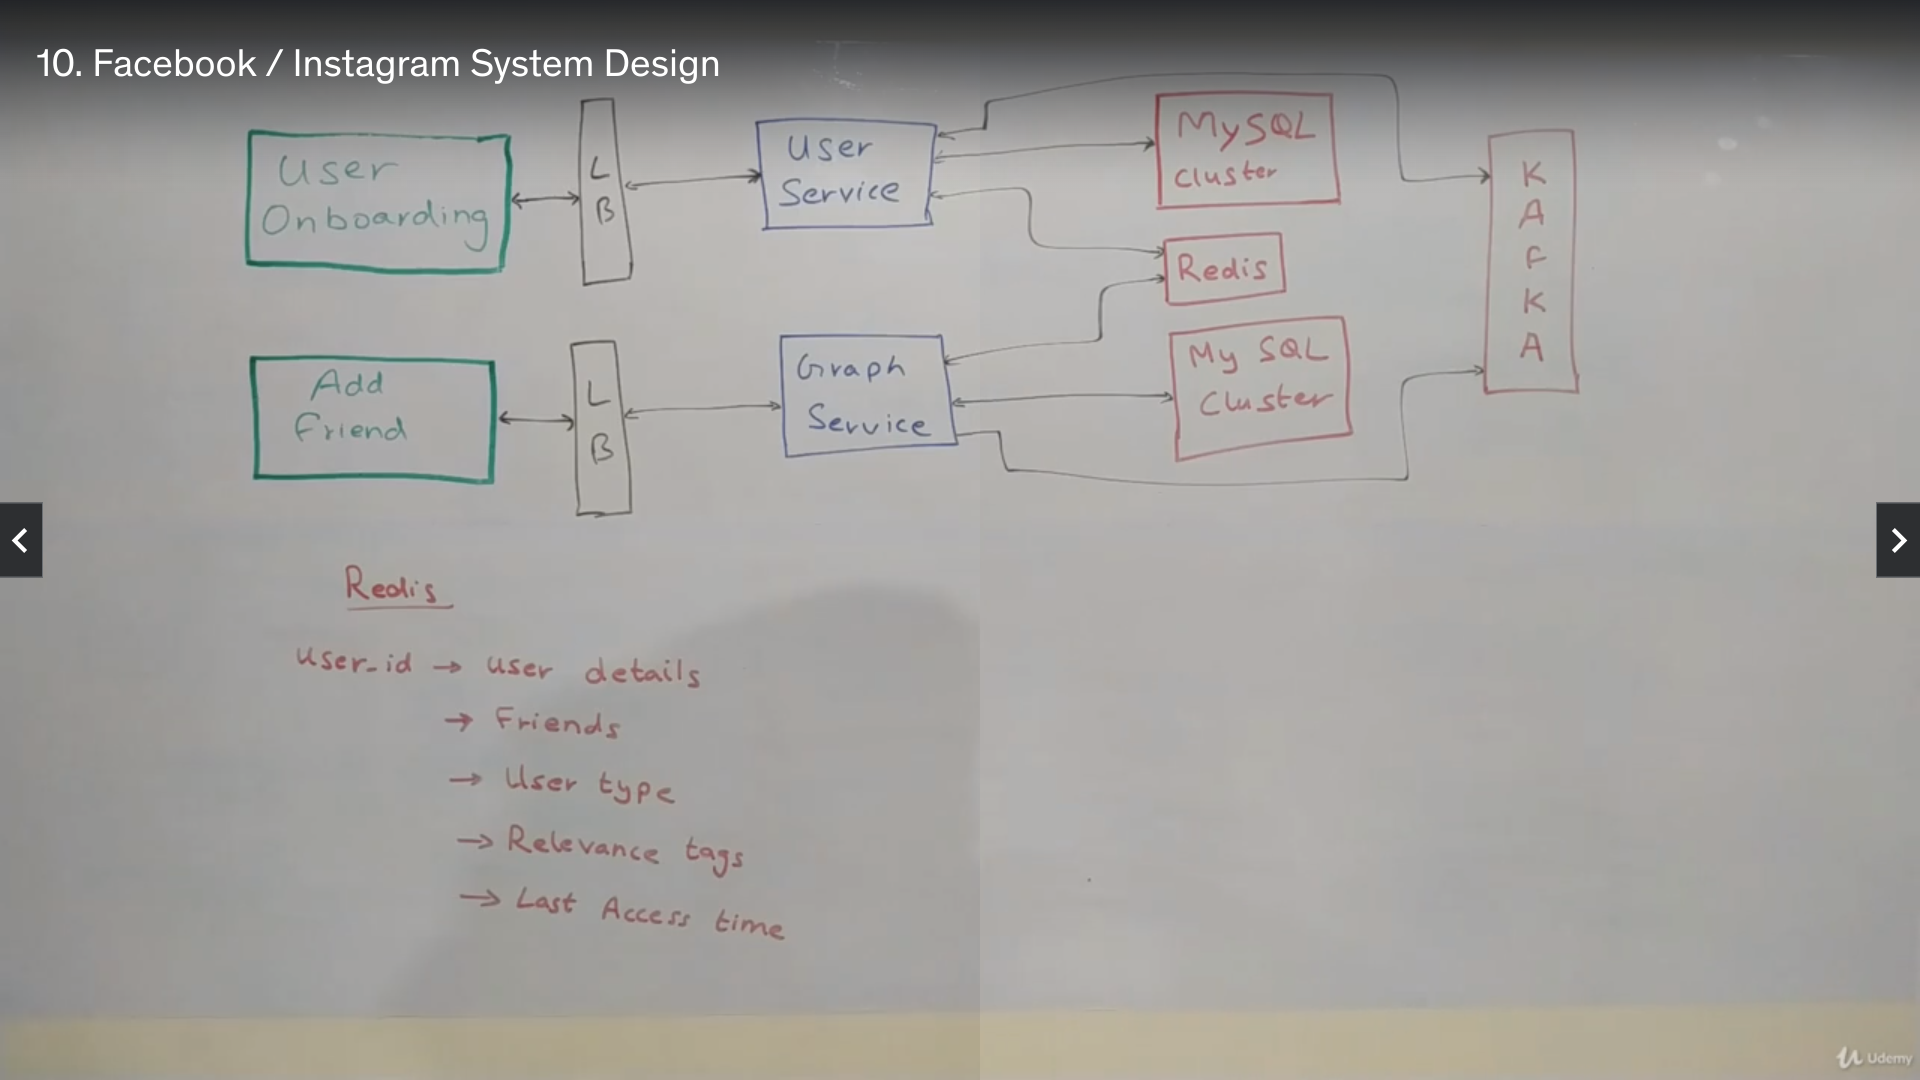 10. Facebook / Instagram System Design
User
Onboarding
L
B
User
Service
MySQL
Cluster
K
A
F
K
A
Redis
Add
Friend
L
B
Graph
Service
My SQL
Cluster
Redis
user_id → user details
→ Friends
→ User type
→ Relevance tags
→ Last Access time
Udemy